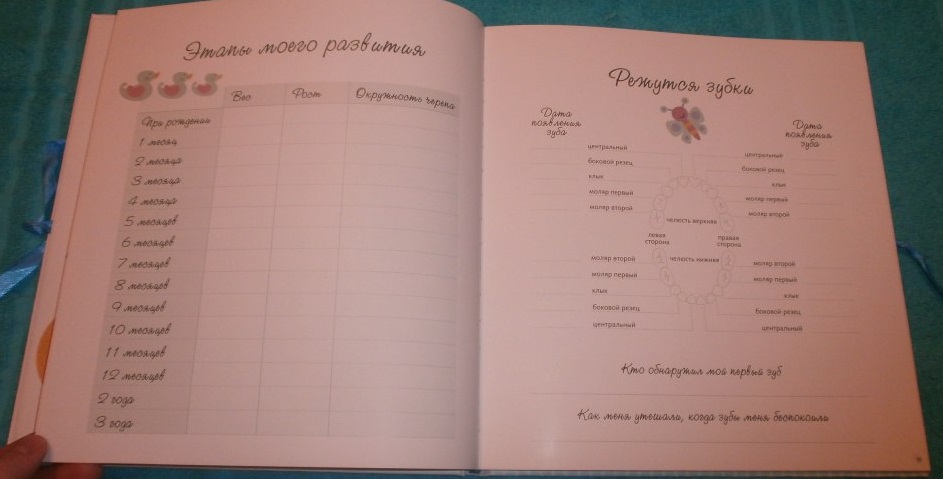 Этапы моего развития
Вес Рост Окружность черепа
При рождении
1 месяц
2 месяца
3 месяца
4 месяца
5 месяцев
6 месяцев
7 месяцев
8 месяцев
9 месяцев
10 месяцев
11 месяцев
12 месяцев
2 года
3 года
Режутся зубки
Дата
появления
зуба
Дата
появления
зуба
центральный
боковой резец
клык
моляр первый
моляр второй
центральный
боковой резец
клык
моляр первый
моляр второй
челюсть верхняя
левая
сторона
правая
сторона
челюсть нижняя
моляр второй
моляр первый
клык
боковой резец
центральный
моляр второй
моляр первый
клык
боковой резец
центральный
Кто обнаружил мой первый зуб
Как меня утешали, когда зубы меня беспокоили